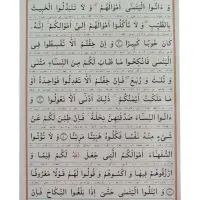 وَ ءَاتُوا الْيَتَٰمَىٰ أَمْوَٰلَهُمْ وَ لَا تَتَبَدَّلُوا الْخَبِيثَ
بِالطَّيِّبِ وَ لَا تَأْكُلُوا أَمْوَٰلَهُمْ إِلَىٰ أَمْوَٰلِكُمْ إِنَّهُ
كَانَ حُوبًا كَبِيرًا ۝ وَ إِنْ خِفْتُمْ أَلَّا تُقْسِطُوا فِي
الْيَتَٰمَىٰ فَانكِحُوا مَا طَابَ لَكُم مِّنَ النِّسَاءِ مَثْنَىٰ وَ ثُلَٰثَ
وَ رُبَٰعَ فَإِنْ خِفْتُمْ أَلَّا تَعْدِلُوا فَوَٰحِدَةً أَوْ
مَا مَلَكَتْ أَيْمَٰنُكُمْ ذَٰلِكَ أَدْنَىٰ أَلَّا تَعُولُوا ۝ وَ
ءَاتُوا النِّسَاءَ صَدُقَٰتِهِنَّ نِحْلَةً فَإِن طِبْنَ لَكُمْ عَن
شَيْءٍ مِّنْهُ نَفْسًا فَكُلُوهُ هَنِيئًا مَّرِيئًا ۝ وَ لَا تُؤْتُوا
السُّفَهَاءَ أَمْوَٰلَكُمُ الَّتِي جَعَلَ اللَّهُ لَكُمْ قِيَٰمًا وَ
ارْزُقُوهُمْ فِيهَا وَ اكْسُوهُمْ وَ قُولُوا لَهُمْ قَوْلًا مَّعْرُوفًا
۝ وَ ابْتَلُوا الْيَتَٰمَىٰ حَتَّىٰ إِذَا بَلَغُوا النِّكَاحَ فَإِنْ